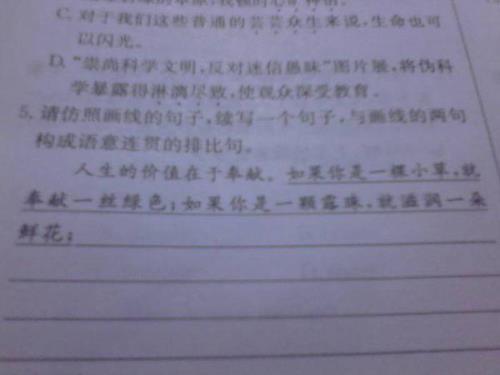 C. 对于我们这些普通的芸芸众生来说,生命也可
以闪光。
D. “崇尚科学文明,反对迷信愚昧”图片展,将伪科
学暴露得淋漓尽致,使观众深受教育。
5. 请仿照画线的句子,续写一个句子,与画线的两句
构成语意连贯的排比句。
人生的价值在于奉献。如果你是一棵小草,就
奉献一丝绿色;如果你是一颗露珠,就滋润一朵
鲜花;